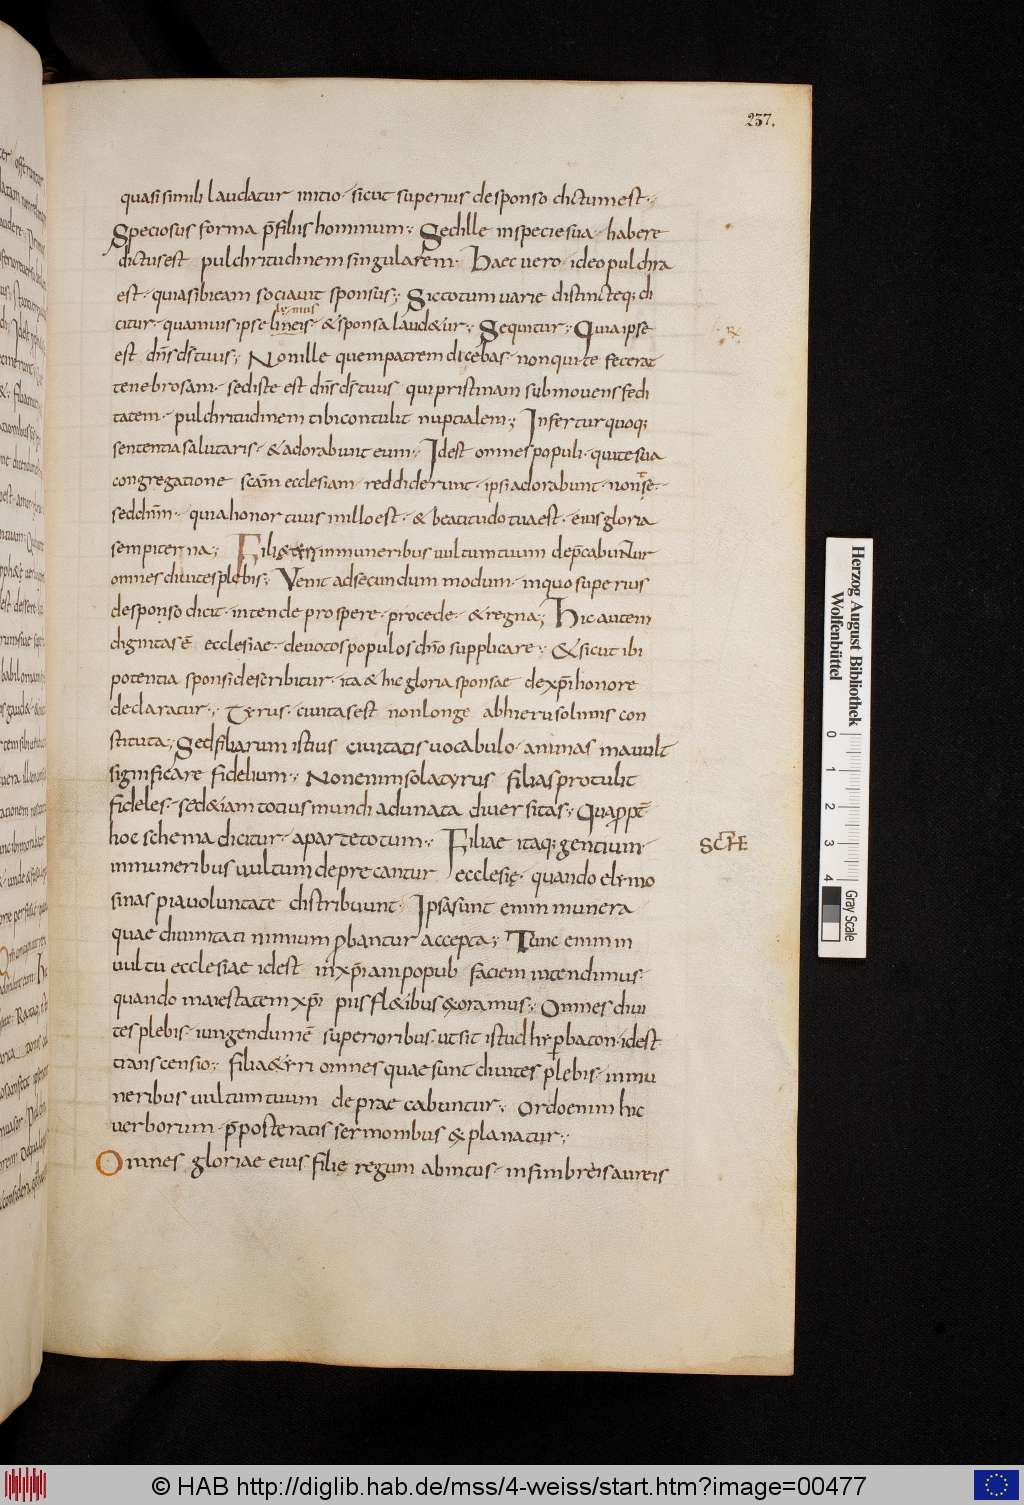 237.
quasi simili laudatur initio· sicut superius de sponso dictum est·
Speciosus forma p̄ filiis hominum·; Sed ille in specie sua· habere
dictus est pulchritudinem singularem· Haec vero· ideo pulchra
est· quia sibi eam sociavit sponsus·; Sic totum varie distincteq; di
citur· quamvis ipse· &sponsa laud&ur·; Sequitur·; Quia ipse
est dn̄s ds̄ tuus·; Non ille quem patrem dicebas· non qui te fecerat
tenebrosam· sed iste est dn̄s ds̄ tuus qui pristinam submovens fedi
tatem· pulchritudinem tibi contulit nuptialem·; Infertur quoq;
sententia salutaris· &adorabunt eum· Idest omnes populi· qui te sua
congregatione sc̄am ecclesiam reddiderunt· ipsi adorabunt· non se·
sed dn̄m· quia honor tuus in illo est· & beatitudo tua est· eius gloria
sempiterna·; Filię in muneribus vultum tuum dep̄cabuntur
omnes divites plebis·; Venit ad secundum modum· in quo superius
de sponso dicit· intende prospere· procede· &regna·; Hic autem
dignitas ē ecclesiae· devotos populos dn̄o supplicare·; &sicut ibi
potentia sponsi describitur· ita & hic gloria sponsae de xp̄i honore
declaratur·; Tyrus· civitas est non longe ab hierusolimis con
stituta·; Sed filiarum istius civitatis vocabulo· animas mavult
significare fidelium·; Non enim sola tyrus filias protulit
fideles· sed&iam totius mundi adunata diversitas·; Quapropt̄
hoc schema dicitur· a parte totum·; Filiae itaq; gentium·
SCHE
in muneribus vultum deprecantur ecclesię· quando elymo
sinas pia voluntate distribuunt· Ipsa sunt enim munera
quae divinitati nimium ꝓbantur accepta·; Tunc enim in
vultu ecclesiae idest in xp̄iam populi faciem intendimus·
quando maiestatem xp̄i piis fl&ibus &oramus·; Omnes divi
tes plebis· iungendum ē superioribus· ut sit istud hyꝑbaton· idest
transcensio·; filia&yri omnes quae sunt divites plebis· in mu
neribus vultum tuum deprae cabuntur·; Ordo enim hic
verborum· p̄posteratis sermonibus &planatur·;
Omnes gloriae eius filię regum ab intus· in fimbreis aureis
Herzog August Bibliothek
Wolfenbüttel
0 1 2 3 4
Gray Scale
© HAB http://diglib.hab.de/mss/4-weiss/start.htm?image=00477